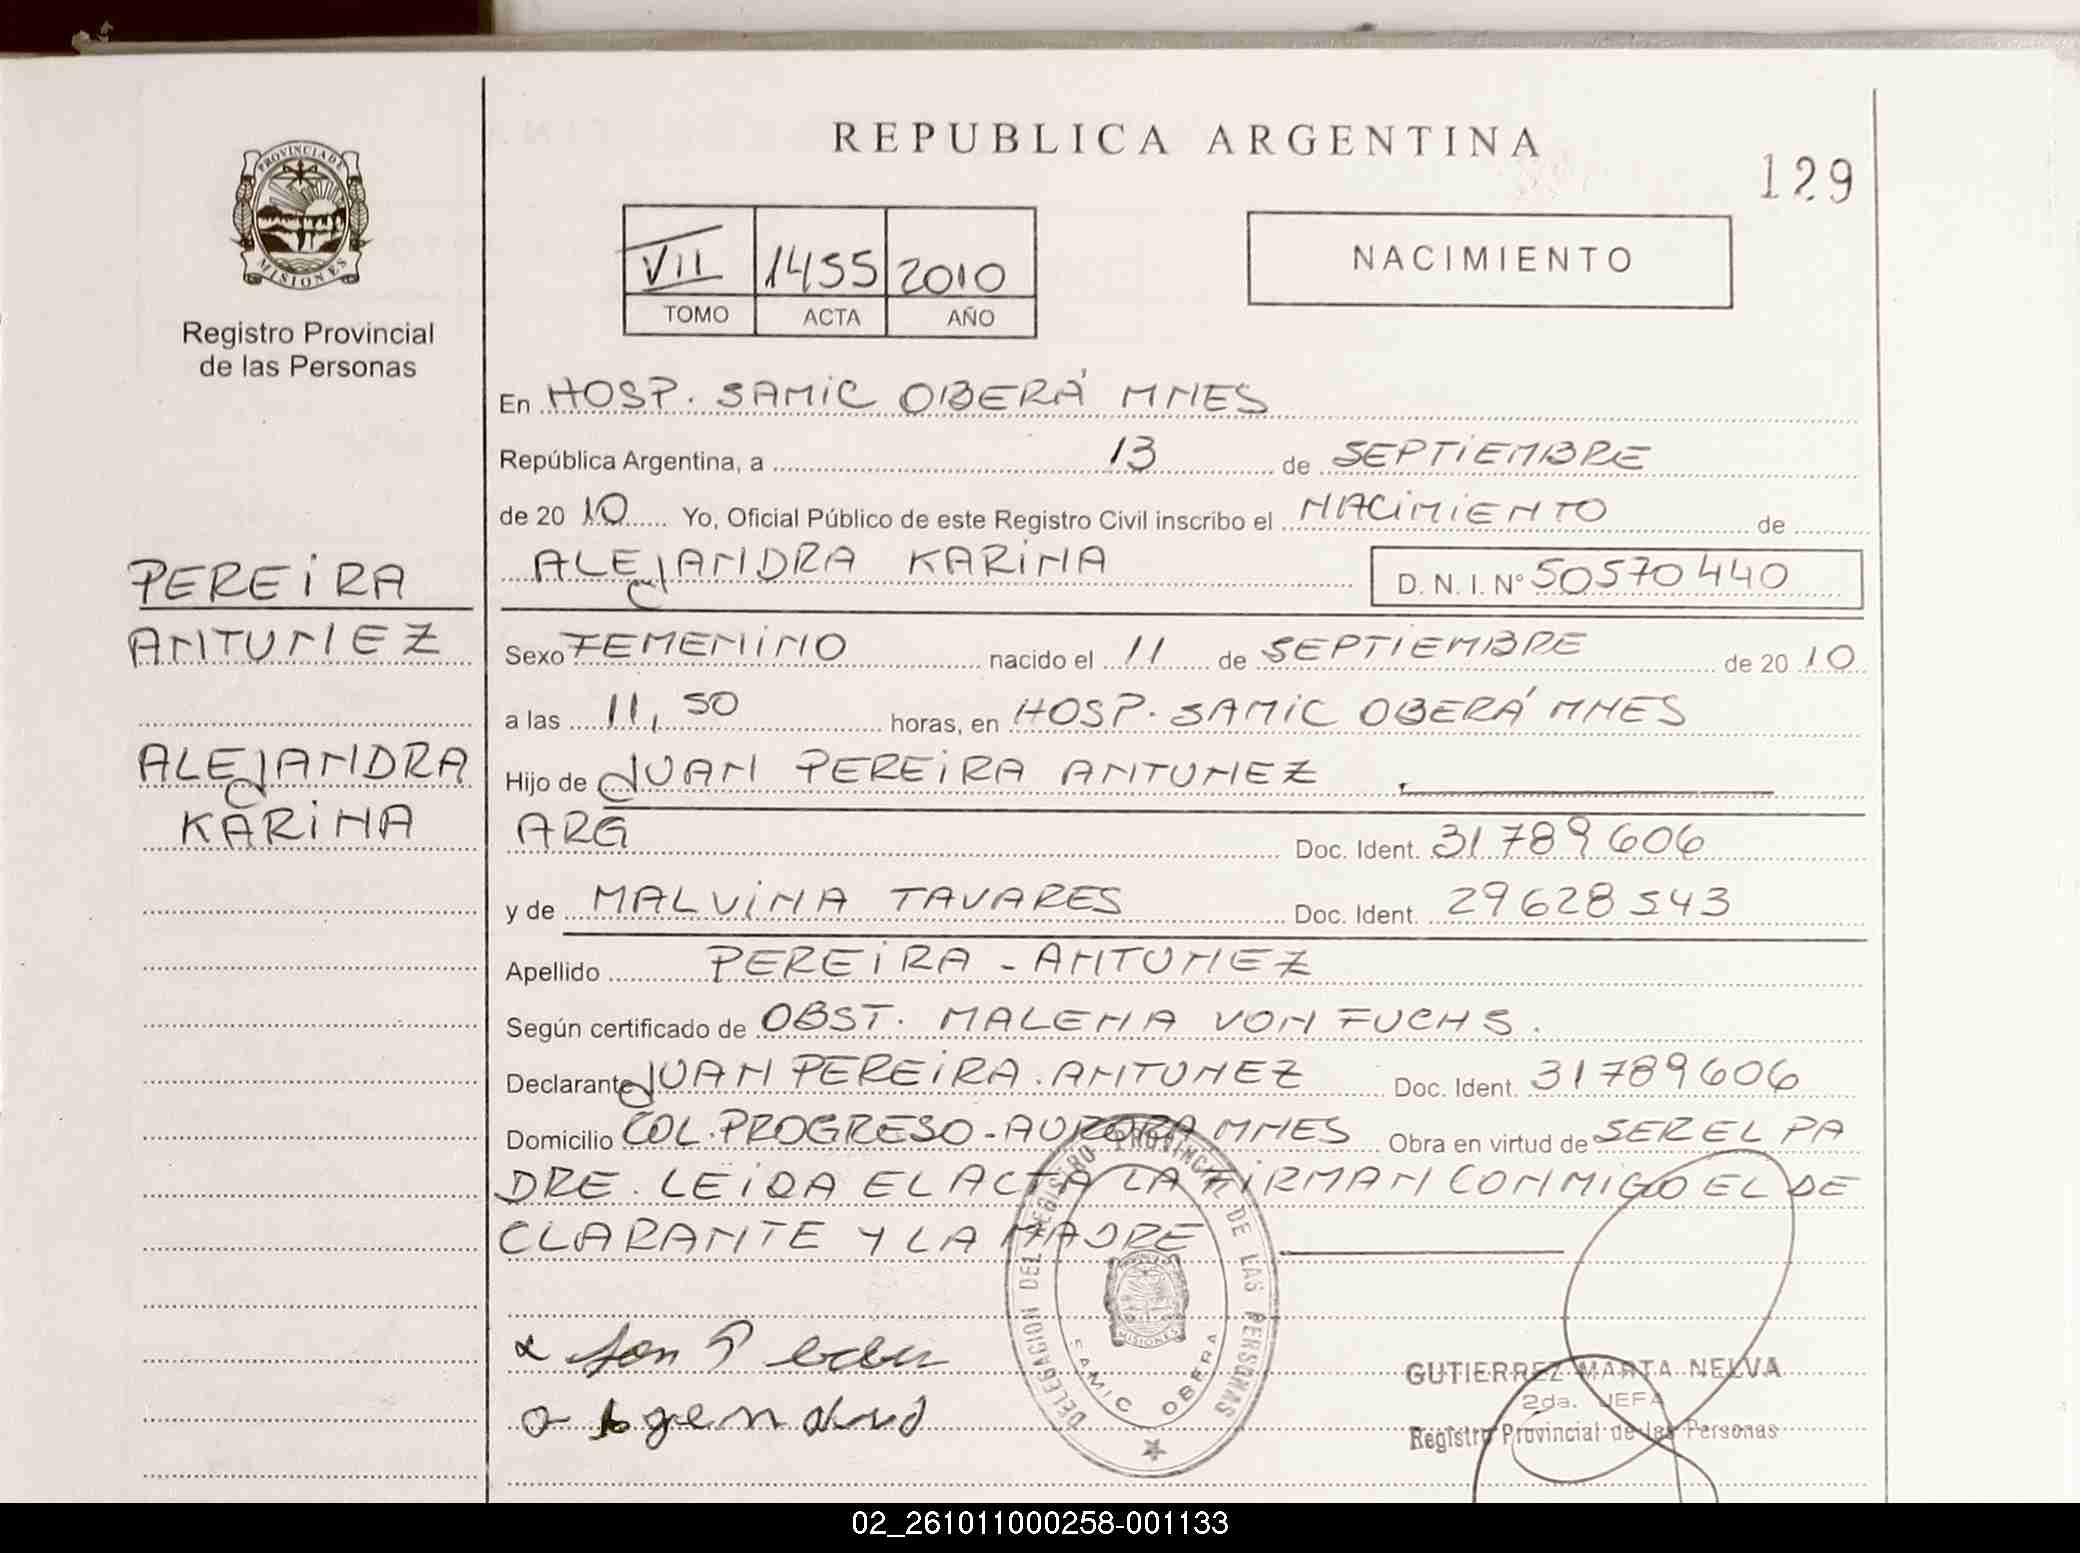 REPUBLICA ARGENTINA
129
PROVINCIA DE
MISIONES
Registro Provincial
de las Personas
VII 1455 2010
TOMO ACTA AÑO
NACIMIENTO
En HOSP. SAMIC OBERÁ MNES
República Argentina, a 13 de SEPTIEMBRE
de 20 10 Yo, Oficial Público de este Registro Civil inscribo el NACIMIENTO de
ALEJANDRA KARINA D. N. I. Nº 50570440
PEREIRA
ANTUNEZ
ALEJANDRA
KARINA
Sexo FEMENINO nacido el 11 de SEPTIEMBRE de 20 10
a las 11,50 horas, en HOSP. SAMIC OBERÁ MNES
Hijo de JUAN PEREIRA ANTUNEZ
ARG Doc. Ident. 31789606
y de MALVINA TAVARES Doc. Ident. 29628543
Apellido PEREIRA - ANTUNEZ
Según certificado de OBST. MALENA VON FUCHS.
Declarante JUAN PEREIRA. ANTUNEZ Doc. Ident. 31789606
Domicilio COL. PROGRESO - AURORA MNES Obra en virtud de SER EL PA
DRE. LEIDA EL ACTA LA FIRMAN CONMIGO EL DE
CLARANTE Y LA MADRE
DELEGACION DEL REGISTRO PROVINCIAL DE LAS PERSONAS
SAMIC OBERA
MISIONES
GUTIERREZ MARTA NELVA
2da. JEFA
Registro Provincial de las Personas
02_261011000258-001133